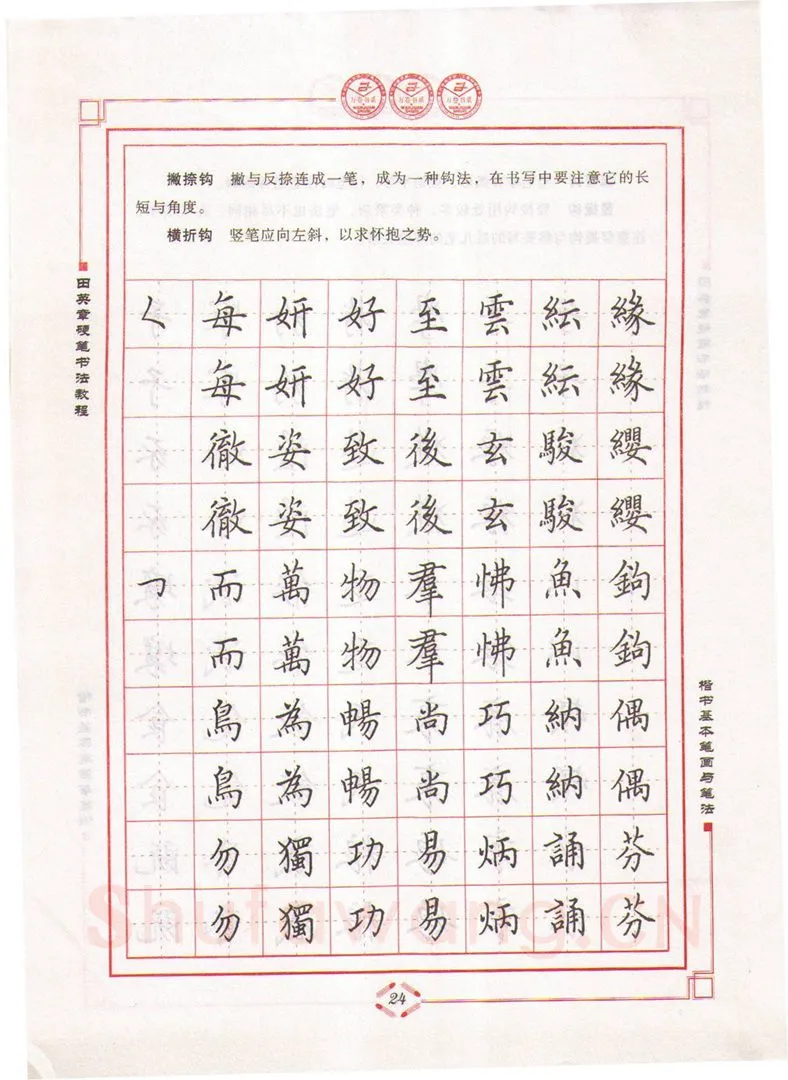 撇捺钩 撇与反捺连成一笔，成为一种钩法，在书写中要注意它的长
短与角度。
横折钩 竖笔应向左斜，以求怀抱之势。
田英章硬笔书法教程
ㄑ 每 妍 好 至 雲 紜 緣
每 妍 好 至 雲 紜 緣
徹 姿 致 後 玄 駿 纓
徹 姿 致 後 玄 駿 纓
㇆ 而 萬 物 羣 怫 魚 鉤
而 萬 物 羣 怫 魚 鉤
鳥 為 暢 尚 巧 納 偶
鳥 為 暢 尚 巧 納 偶
勿 獨 功 易 炳 誦 芬
勿 獨 功 易 炳 誦 芬
楷书基本笔画与笔法
Shufawang.CN
24